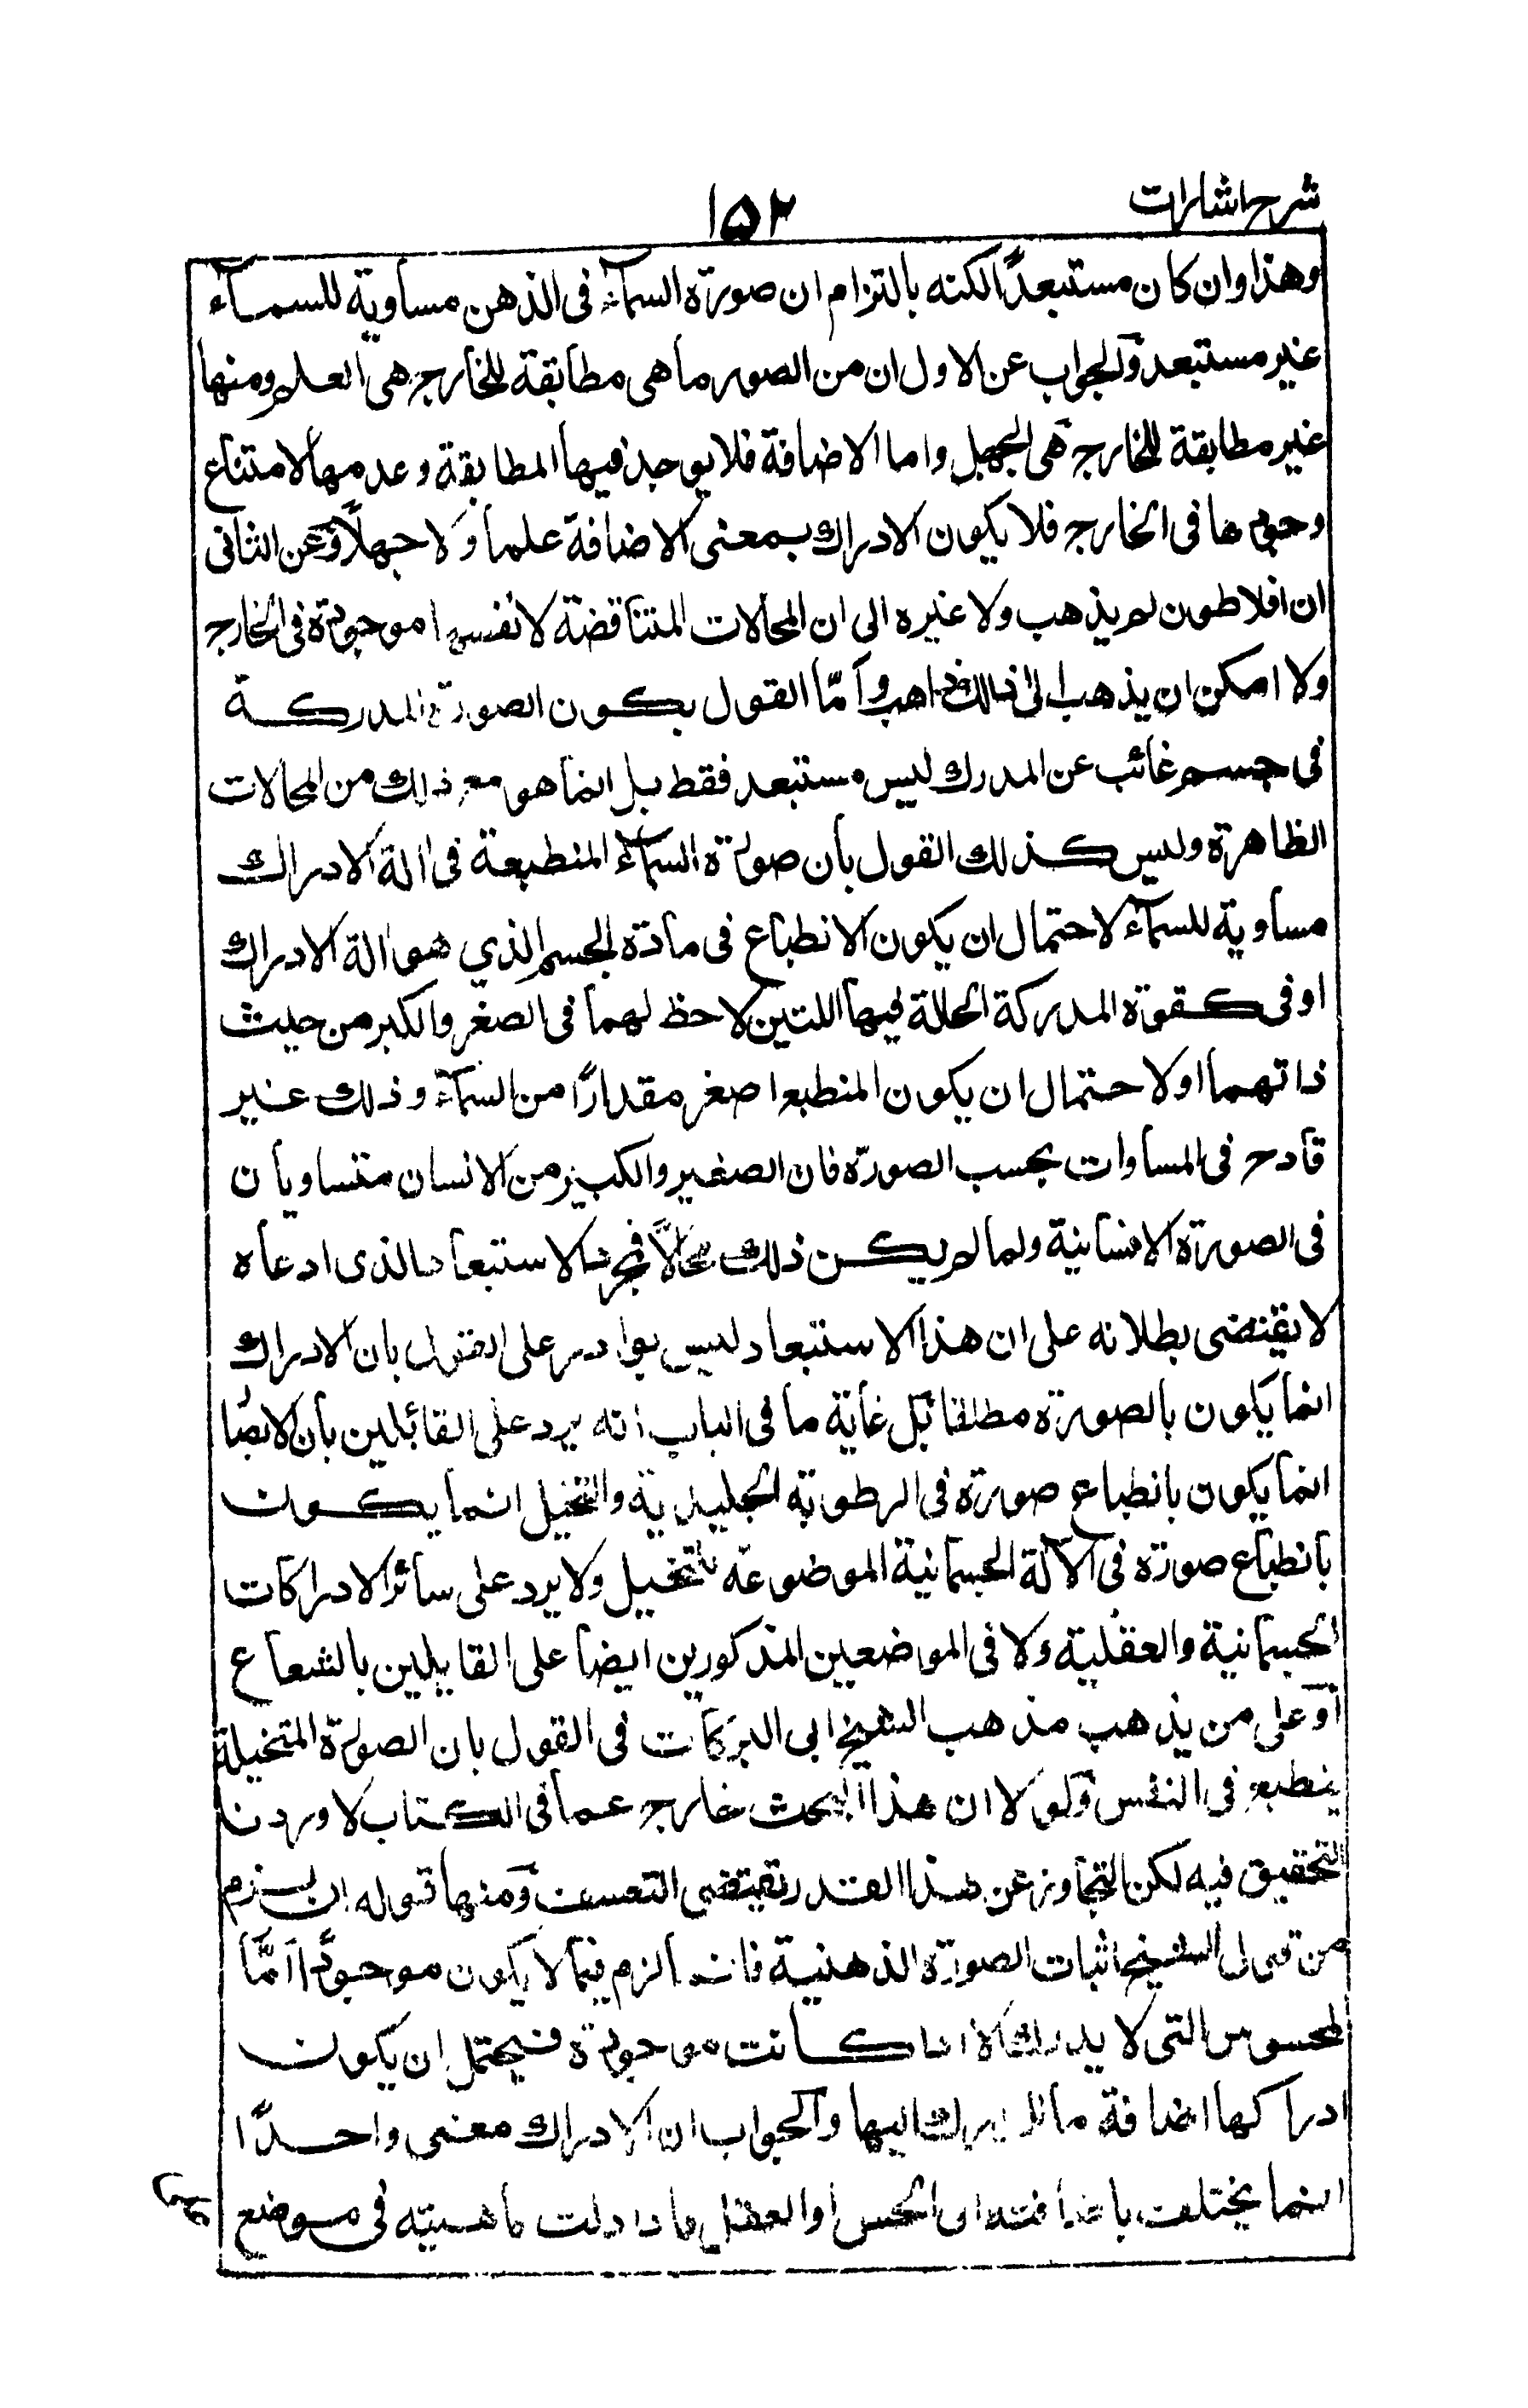 شرح اشارات
١٥٢
وهذا وان كان مستبعدًا لكنه بالتزام ان صورة السمآء فى الذهن مساوية للسمآء
غير مستبعد والجواب عن الاول ان من الصور ما هى مطابقة للخارج هى العلم ومنها
غير مطابقة للخارج هى الجهل واما الاضافة فلا يوجد فيها المطابقة وعدمها لامتناع
وجودها فى الخارج فلا يكون الادراك بمعنى الاضافة علما ولا جهلًا وعن الثانى
ان افلاطون لم يذهب ولا غيره الى ان المحالات المتناقضة لانفسها موجودة فى الخارج
ولا امكن ان يذهب الى ذلك ذاهب وأمّا القول بكون الصورة المدركة
فى جسم غائب عن المدرك ليس مستبعد فقط بل انما هو مع ذلك من المحالات
الظاهرة وليس كذلك القول بأن صورة السمآء المنطبعة فى الة الادراك
مساوية للسمآء لاحتمال ان يكون الانطباع فى مادة الجسم الذي هو الة الادراك
او فى كقوة المدركة الحالة فيها اللتين لاحظ لهما فى الصغر والكبر من حيث
ذاتهما اولاحتمال ان يكون المنطبع اصغر مقدارًا من السمآء وذلك غير
قادح فى المساوات بحسب الصورة فان الصغير والكبير من الانسان متساويان
فى الصورة الانسانية ولما لم يكن ذلك محالًا فمجرد الاستبعاد الذى ادعاه
لا يقتضى بطلانه على ان هذا الاستبعاد ليس بوارد على القول بان الادراك
انما يكون بالصورة مطلقا بل غاية ما فى الباب انه يرد على القائلين بأن الابصا
انما يكون بانطباع صورة فى الرطوبة الجليدية والتخيل انما يكون
بانطباع صورة فى الآلة الجسمانية الموضوعة للتخيل ولا يرد على سائر الادراكات
الجسمانية والعقلية ولا فى الموضعين المذكورين ايضا على القايلين بالشعاع
أو على من يذهب مذهب الشيخ ابى البركات فى القول بان الصورة المتخيلة
ينطبع فى النفس ولو لا ان هذا البحث خارج عما فى الكتاب لاوردنا
التحقيق فيه لكن التجاوز عن هذا القدر يقتضى التعسف ومنها قوله ان يلزم
من قول الشيخ اثبات الصورة الذهنية فانه الزم فيما لا يكون موجودًا أمَّا
المحسوس التى لا يدرك الا اذا كانت موجودة فيحتمل ان يكون
ادراكها اضافة ما للمدرك اليها والجواب ان الادراك معنى واحدًا
انما يختلف باضافته الى الحس او العقل فاذا دلت ماهيته فى موضع